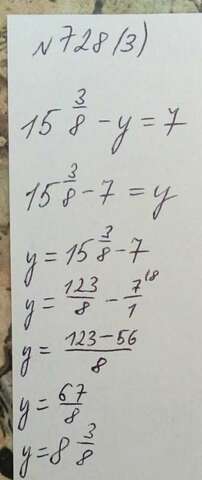 №728(3)
15 3/8 - y = 7
15 3/8 - 7 = y
y = 15 3/8 - 7
y = 123/8 - 7/1 \8
y = 123-56/8
y = 67/8
y = 8 3/8